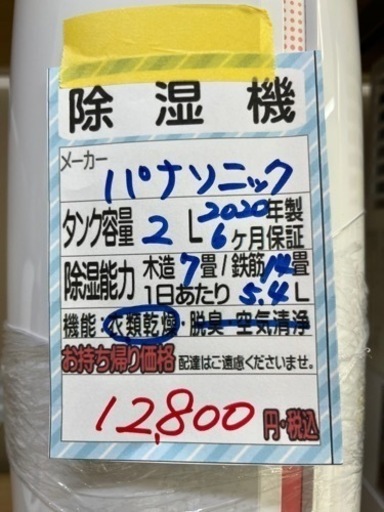 除湿機
メーカー
パナソニック
2020年製
タンク容量 2L 6ヶ月保証
除湿能力 木造7畳/鉄筋14畳
1日あたり 5.4L
機能:衣類乾燥・脱臭・空気清浄
お持ち帰り価格 配達はご遠慮くださいませ。
12,800円・税込